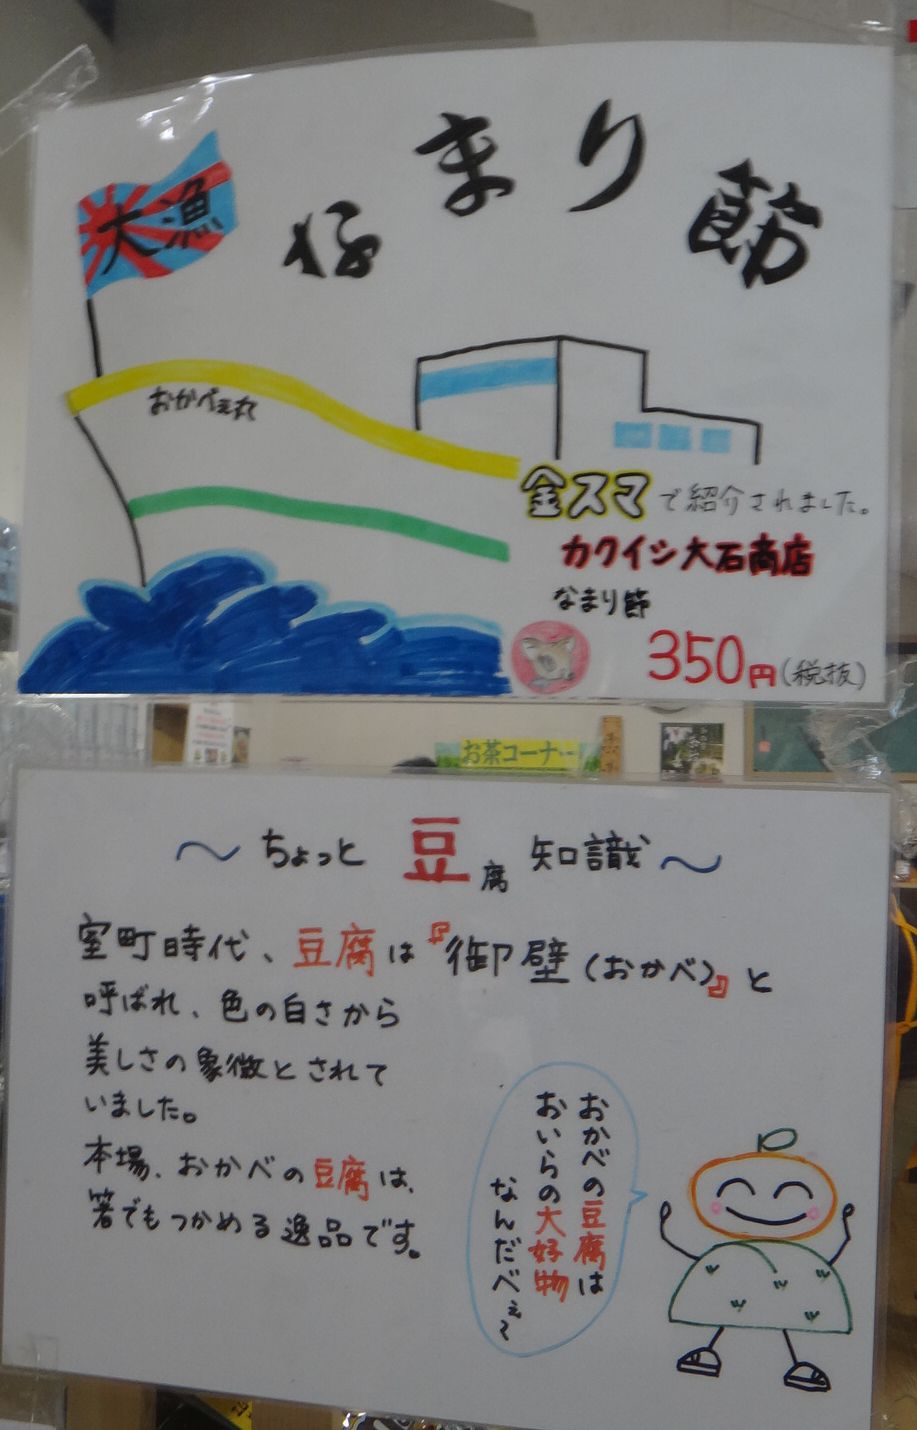 なまり節
大漁
おかべぇ丸
金スマで紹介されました。
カクイシ大石商店
なまり節
350円(税抜)
お茶コーナー
～ちょっと豆腐知識～
室町時代、豆腐は『御壁(おかべ)』と
呼ばれ、色の白さから
美しさの象徴とされて
いました。
本場、おかべの豆腐は、
箸でもつかめる逸品です。
おかべの豆腐は
おいらの大好物
なんだべぇ～